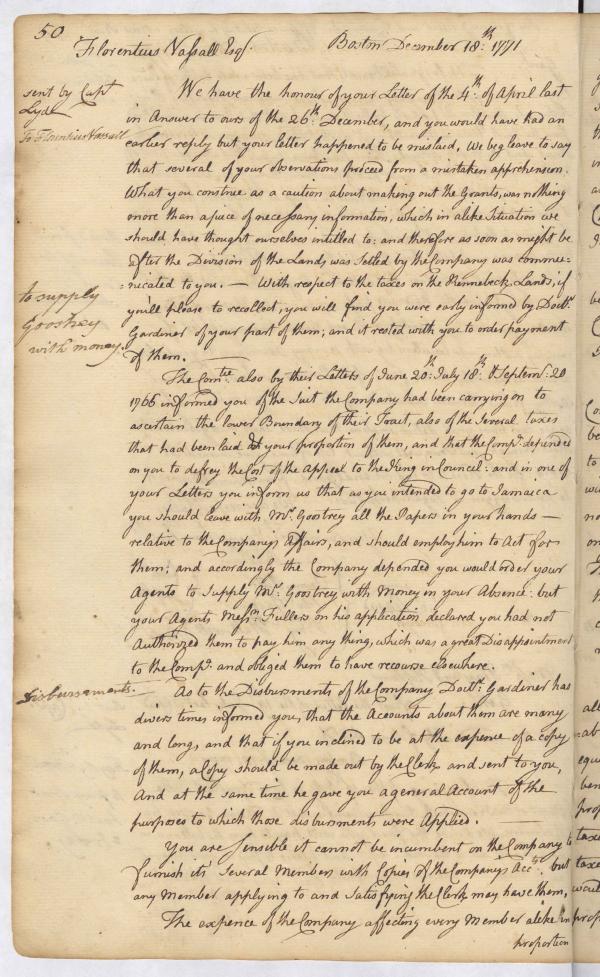 50
Florentius Vassall Esqr.
Boston December 18th. 1771
sent by Capt
Lyde
To Florentius Vassall
We have the honour of your Letter of the 4th. of April last
in Answer to ours of the 26th. December, and you would have had an
earlier reply but your letter happened to be mislaid. We beg leave to say
that several of your observations proceed from a mistaken apprehension.
What you construe as a caution about making out the Grants, was nothing
more than a piece of necessary information, which in alike Situation we
should have thought ourselves intitled to: and therefore as soon as might be
after the Division of the Lands was Setled by the Company was commu=
=nicated to you. — With respect to the taxes on the Kennebeck Lands, if
you'll please to recollect, you will find you were early informed by Doctr.
Gardiner of your part of them; and it rested with you to order payment
of them. —
to supply
Goostrey
with money.
The Comtee. also by their Letters of June 20th. July 18th. & Septemr. 20
1766 informed you of the Suit the Company had been carrying on to
ascertain the lower Boundary of their Tract, also of the Several taxes
that had been laid & your proportion of them, and that the Compy. depended
on you to defrey the Cost of the Appeal to the King in Council: and in one of
your Letters you inform us that as you intended to go to Jamaica
you should leave with Mr. Goostrey all the Papers in your hands —
relative to the Companys Affairs, and should employ him to Act for
them; and accordingly the Company depended you would order your
Agents to Supply Mr. Goostrey with Money in your Absence: but
your Agents Messrs. Fullers on his application declared you had not
Authorized them to pay him any thing, which was a great Disappointment
to the Compy. and obliged them to have recourse elsewhere.
Disbursements. —
As to the Disbursments of the Company Doctr. Gardiner has
divers times informed you, that the Accounts about them are many
and long, and that if you inclined to be at the expense of a copy
of them, a Copy should be made out by the Clerk and sent to you,
And at the same time he gave you a general Account of the
purposes to which those disbursments were Applied. —
You are Sensible it cannot be incumbent on the Company to
furnish its Several Members with Copies of the Company's Accts. but
any Member applying to and Satisfying the Clerk may have them.
The expence of the Company affecting every Member alike in
proportion